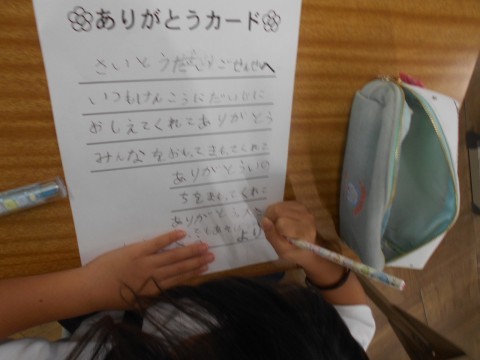 ありがとうカード
さいとうだいごせんせいへ
いつもけんこうにだいじに
おしえてくれてありがとう
みんなをおもってきもってくれて
ありがとういの
ちをまもってくれて
ありがとう
より